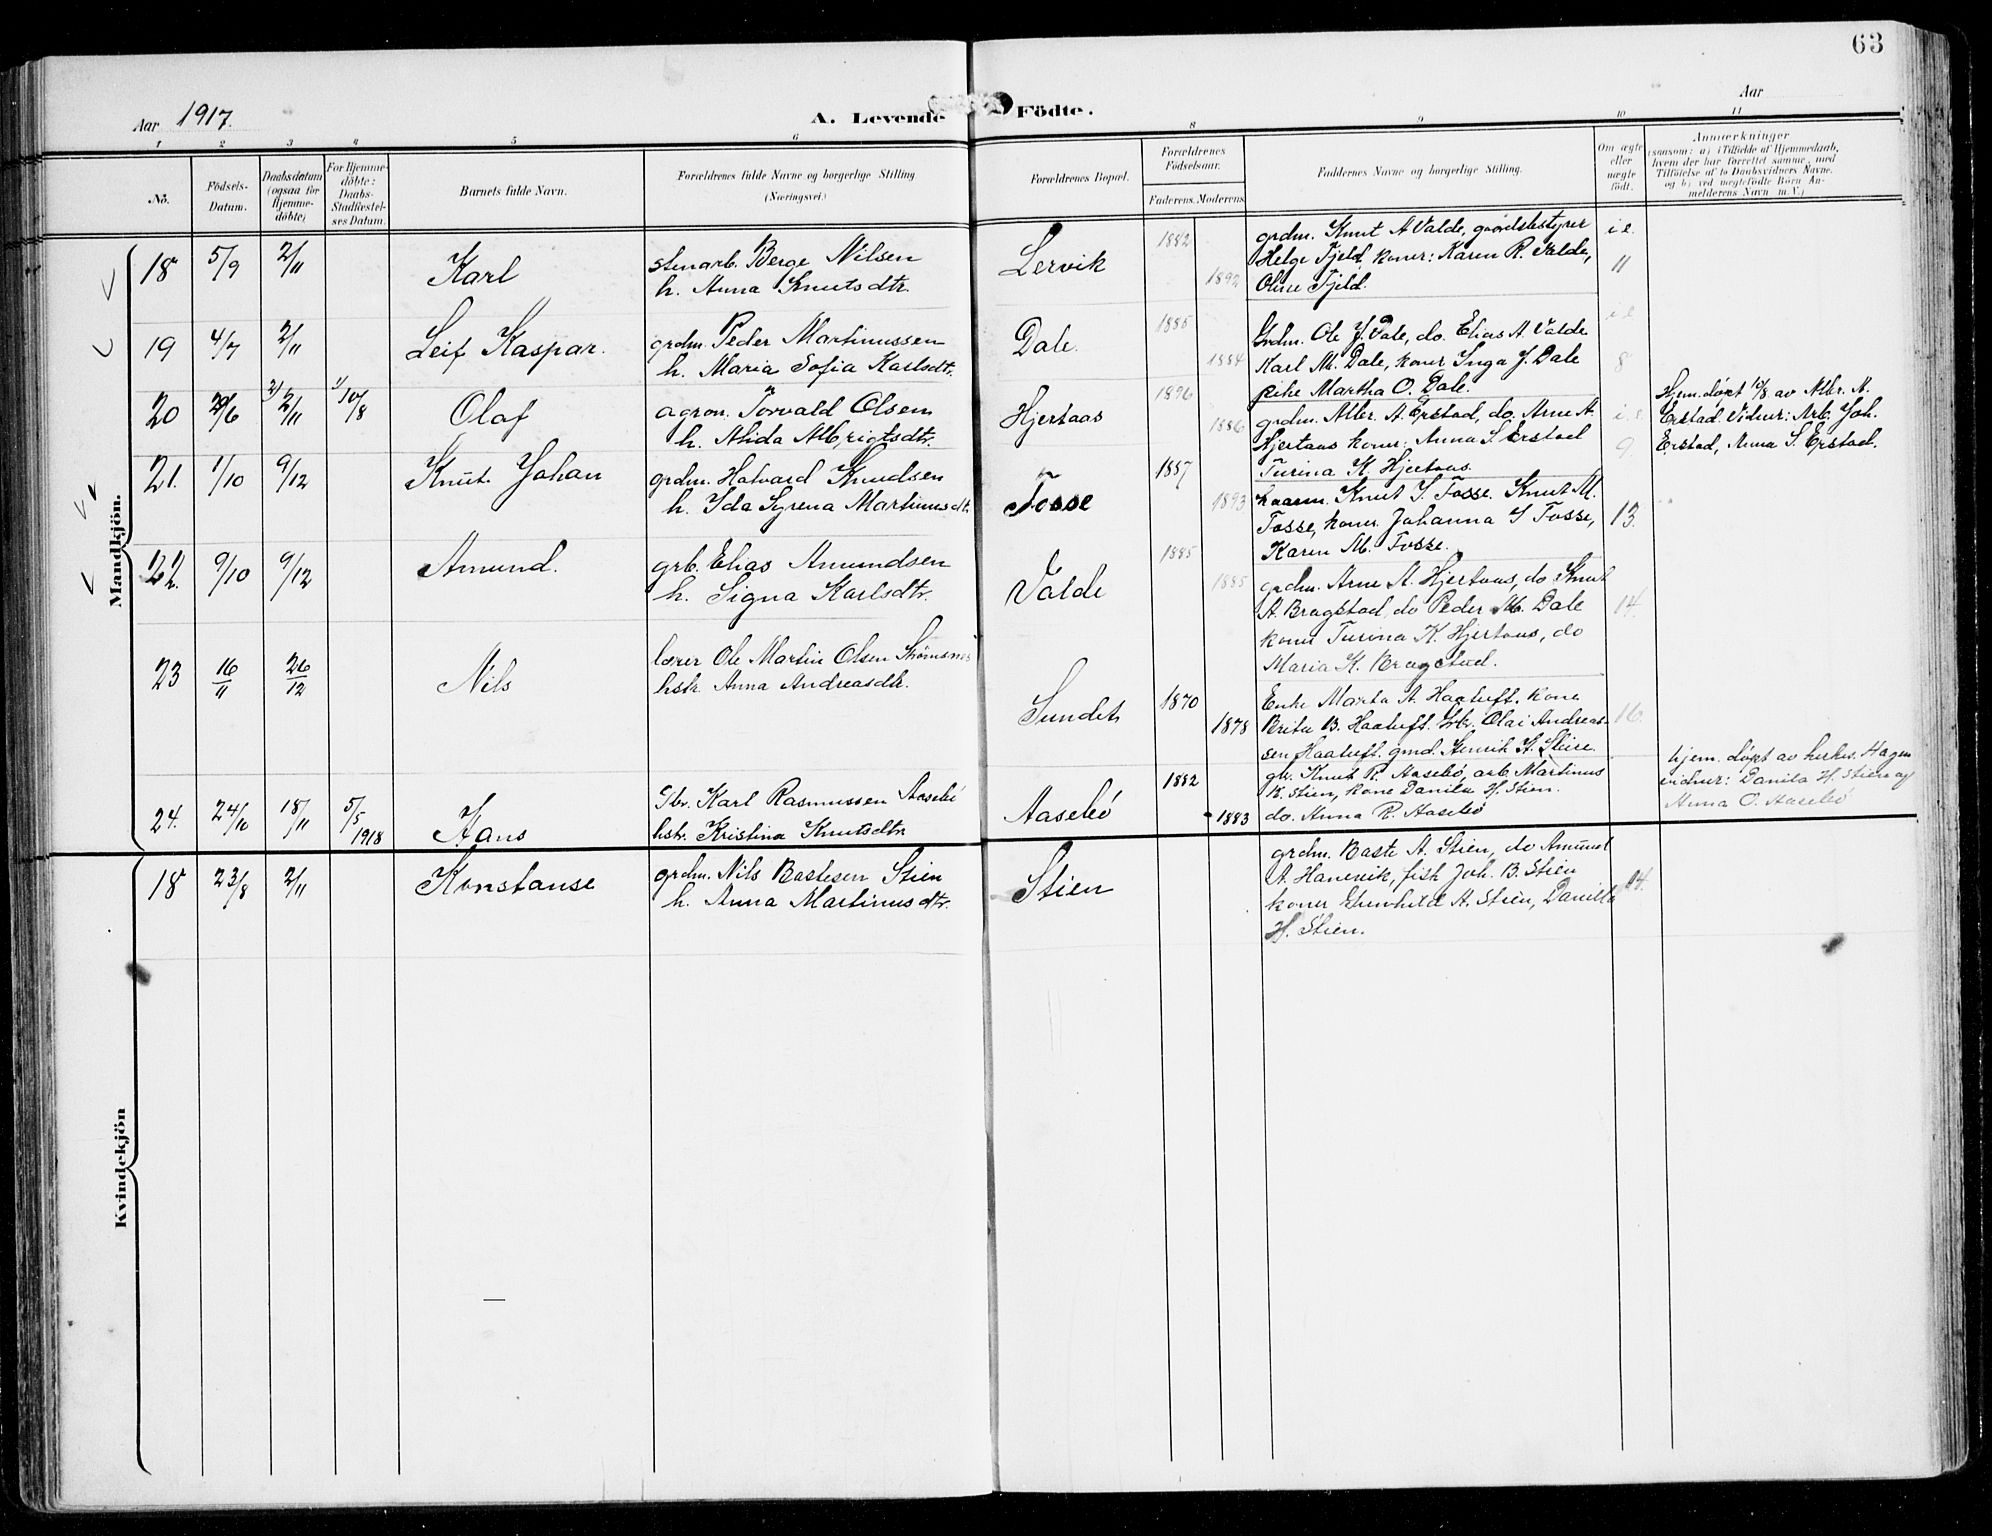 63
Aar 1917.
A. Levende Födte.
Aar
1 2 3 4 5 6 8 9 10 11
No.
Födsels-Datum.
Daabsdatum (ogsaa for Hjemme-döbte)
For Hjemme-döbte: Daabs-Stadfæstel-ses Datum.
Barnets fulde Navn.
Forældrenes fulde Navne og borgerlige Stilling
(Næringsvei.)
Forældrenes Bopæl.
Forældrenes Födselsaar.
Faderens. Moderens.
Faddernes Navne og borgerlige Stilling.
Om ægte eller uægte födt.
Anmærkninger
(saasom: a) i Tilfælde af Hjemmedaab,
hvem der har forrettet samme, med
Tilföielse af to Daabsvidners Navne,
og b) ved uægtefödte Börn An-
melderens Navn m. V.)
Mandkjön.
18 5/9 2/11 Karl
stenarb. Berge Nilsen
h. Anna Knutsdtr.
Lervik 1882 1892
grdm. Knut A Valde, gaardsbestyrer
Helge Fjeld, koner: Karen R. Valde,
Oline Fjeld.
i e.
11
19 4/7 2/11 Leif Kaspar.
grdm. Peder Martinussen
h. Maria Sofia Karlsdtr.
Dale. 1885 1884
Grdm. Ole J. Dale, do. Elias A. Valde
Karl M. Dale, koner Inga J. Dale
pike Martha O. Dale.
i e
8
20 29/6 2/11 10/8 Olaf
agron. Torvald Olsen
h. Alida Albrigtsdtr.
Hjertaas 1896 1886
grdm. Albr. A. Erstad, do. Arne A.
Hjertaas koner: Anna S. Erstad
Turina K. Hjertaas.
i e
9.
Hjem. døpt 10/8 av Albr. A.
Erstad. Vidner: Arb. Joh.
Erstad, Anna S. Erstad.
21. 1/10 9/12 Knut Johan
grdm. Halvard Knudsen
h. Ida Syrena Martinusdtr.
Fosse 1887 1893
Knut I. Fosse. Knut M.
Fosse, koner Johanna I Fosse,
Karen M. Fosse.
13.
22. 9/10 9/12 Amund.
grb. Elias Amundsen
h. Signa Karlsdtr.
Valde 1885 1885
grdm. Arne A. Hjertaas, do Knut
A. Bragstad, do Peder M. Dale
koner Turina K. Hjertaas, do
Maria K. Bragstad.
14.
23 16/11 26/12 Nils
lærer Ole Martin Olsen Strømsnes
hstr. Anna Andreasdtr.
Sundet 1870 1878
Enke Marta A. Haatuft. kone
Brita B. Haatuft. Olai Andreas-
sen Haatuft. gmd. Henrik H. Steire.
16.
24. 24/10 18/11 5/5 1918 Hans
Gbr. Karl Rasmussen Aasebö
hstr. Kristina Knutsdtr
Aasebö 1882 1883
gbr. Knut R. Aasebö, arb. Martinus
K. Stien, kone Danila H. Stien.
do. Anna R. Aasebö
hjem. døpt av Hagen
vidner: Danila H. Stien og
Anna O. Aasebö
Kvindekjön
18 23/8 2/11 Konstanse
grdm. Nils Bastesen Stien
h. Anna Martinusdtr.
Stien
grdm. Baste A. Stien, do Amund
A. Hanevik, fisk Joh. B. Stien
koner A. Stien, Danilla
H. Stien.
14.